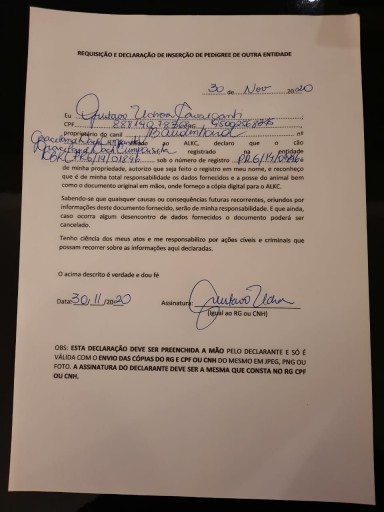 REQUISIÇÃO E DECLARAÇÃO DE INSERÇÃO DE PEDIGREE DE OUTRA ENTIDADE
30 de Nov 2020
Eu Gustavo Uchoa Cavalcanti
CPF RG
proprietário do canil nº
afiliado ao ALKC, declaro que o cão
registrado na entidade
sob o número de registro é
de minha propriedade, autorizo que seja feito o registro em meu nome, e reconheço
que é de minha total responsabilidade os dados fornecidos e a posse do animal bem
como o documento original em mãos, onde forneço a cópia digital para o ALKC.
Sabendo-se que quaisquer causas ou consequências futuras recorrentes, oriundos por
informações deste documento fornecido, serão de minha responsabilidade. E que ainda,
caso ocorra algum desencontro de dados fornecidos o documento poderá ser
cancelado.
Tenho ciência dos meus atos e me responsabilizo por ações cíveis e criminais que
possam recorrer sobre as informações aqui declaradas.
O acima descrito é verdade e dou fé
Data: 30/11/2020 Assinatura: Gustavo Uchoa
(Igual ao RG ou CNH)
OBS: ESTA DECLARAÇÃO DEVE SER PREENCHIDA A MÃO PELO DECLARANTE E SÓ É
VÁLIDA COM O ENVIO DAS CÓPIAS DO RG E CPF OU CNH DO MESMO EM JPEG, PNG OU
FOTO. A ASSINATURA DO DECLARANTE DEVE SER A MESMA QUE CONSTA NO RG CPF
OU CNH.